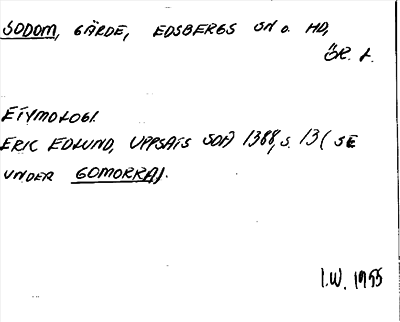 SODOM, GÄRDE, EDSBERGS SN o. HD,
ÖR. L.
ETYMOLOGI.
ERIC EDLUND, UPPSATS SOÄ 1388, s. 13 ( SE
UNDER GOMORRA).
I.W. 1955